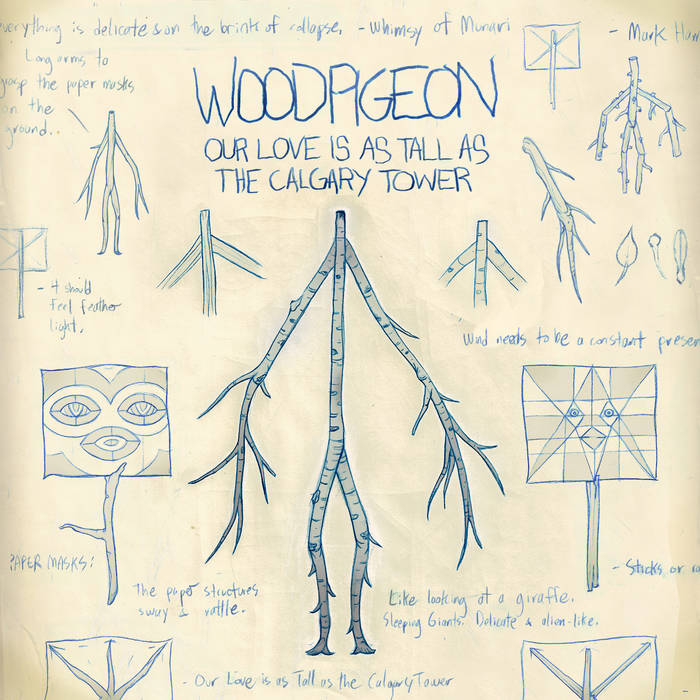 everything is delicate & on the brink of collapse. - Whimsy of Munari
- Mark
Long arms to
grasp the paper masks
on the
ground..
WOODPIGEON
OUR LOVE IS AS TALL AS
THE CALGARY TOWER
- it should
feel feather
light.
Wind needs to be a constant presen
PAPER MASKS:
The paper structures
sway & rattle.
Like looking at a giraffe.
Sleeping Giants. Delicate & alien-like.
- Sticks or
- Our Love is as Tall as the Calgary Tower